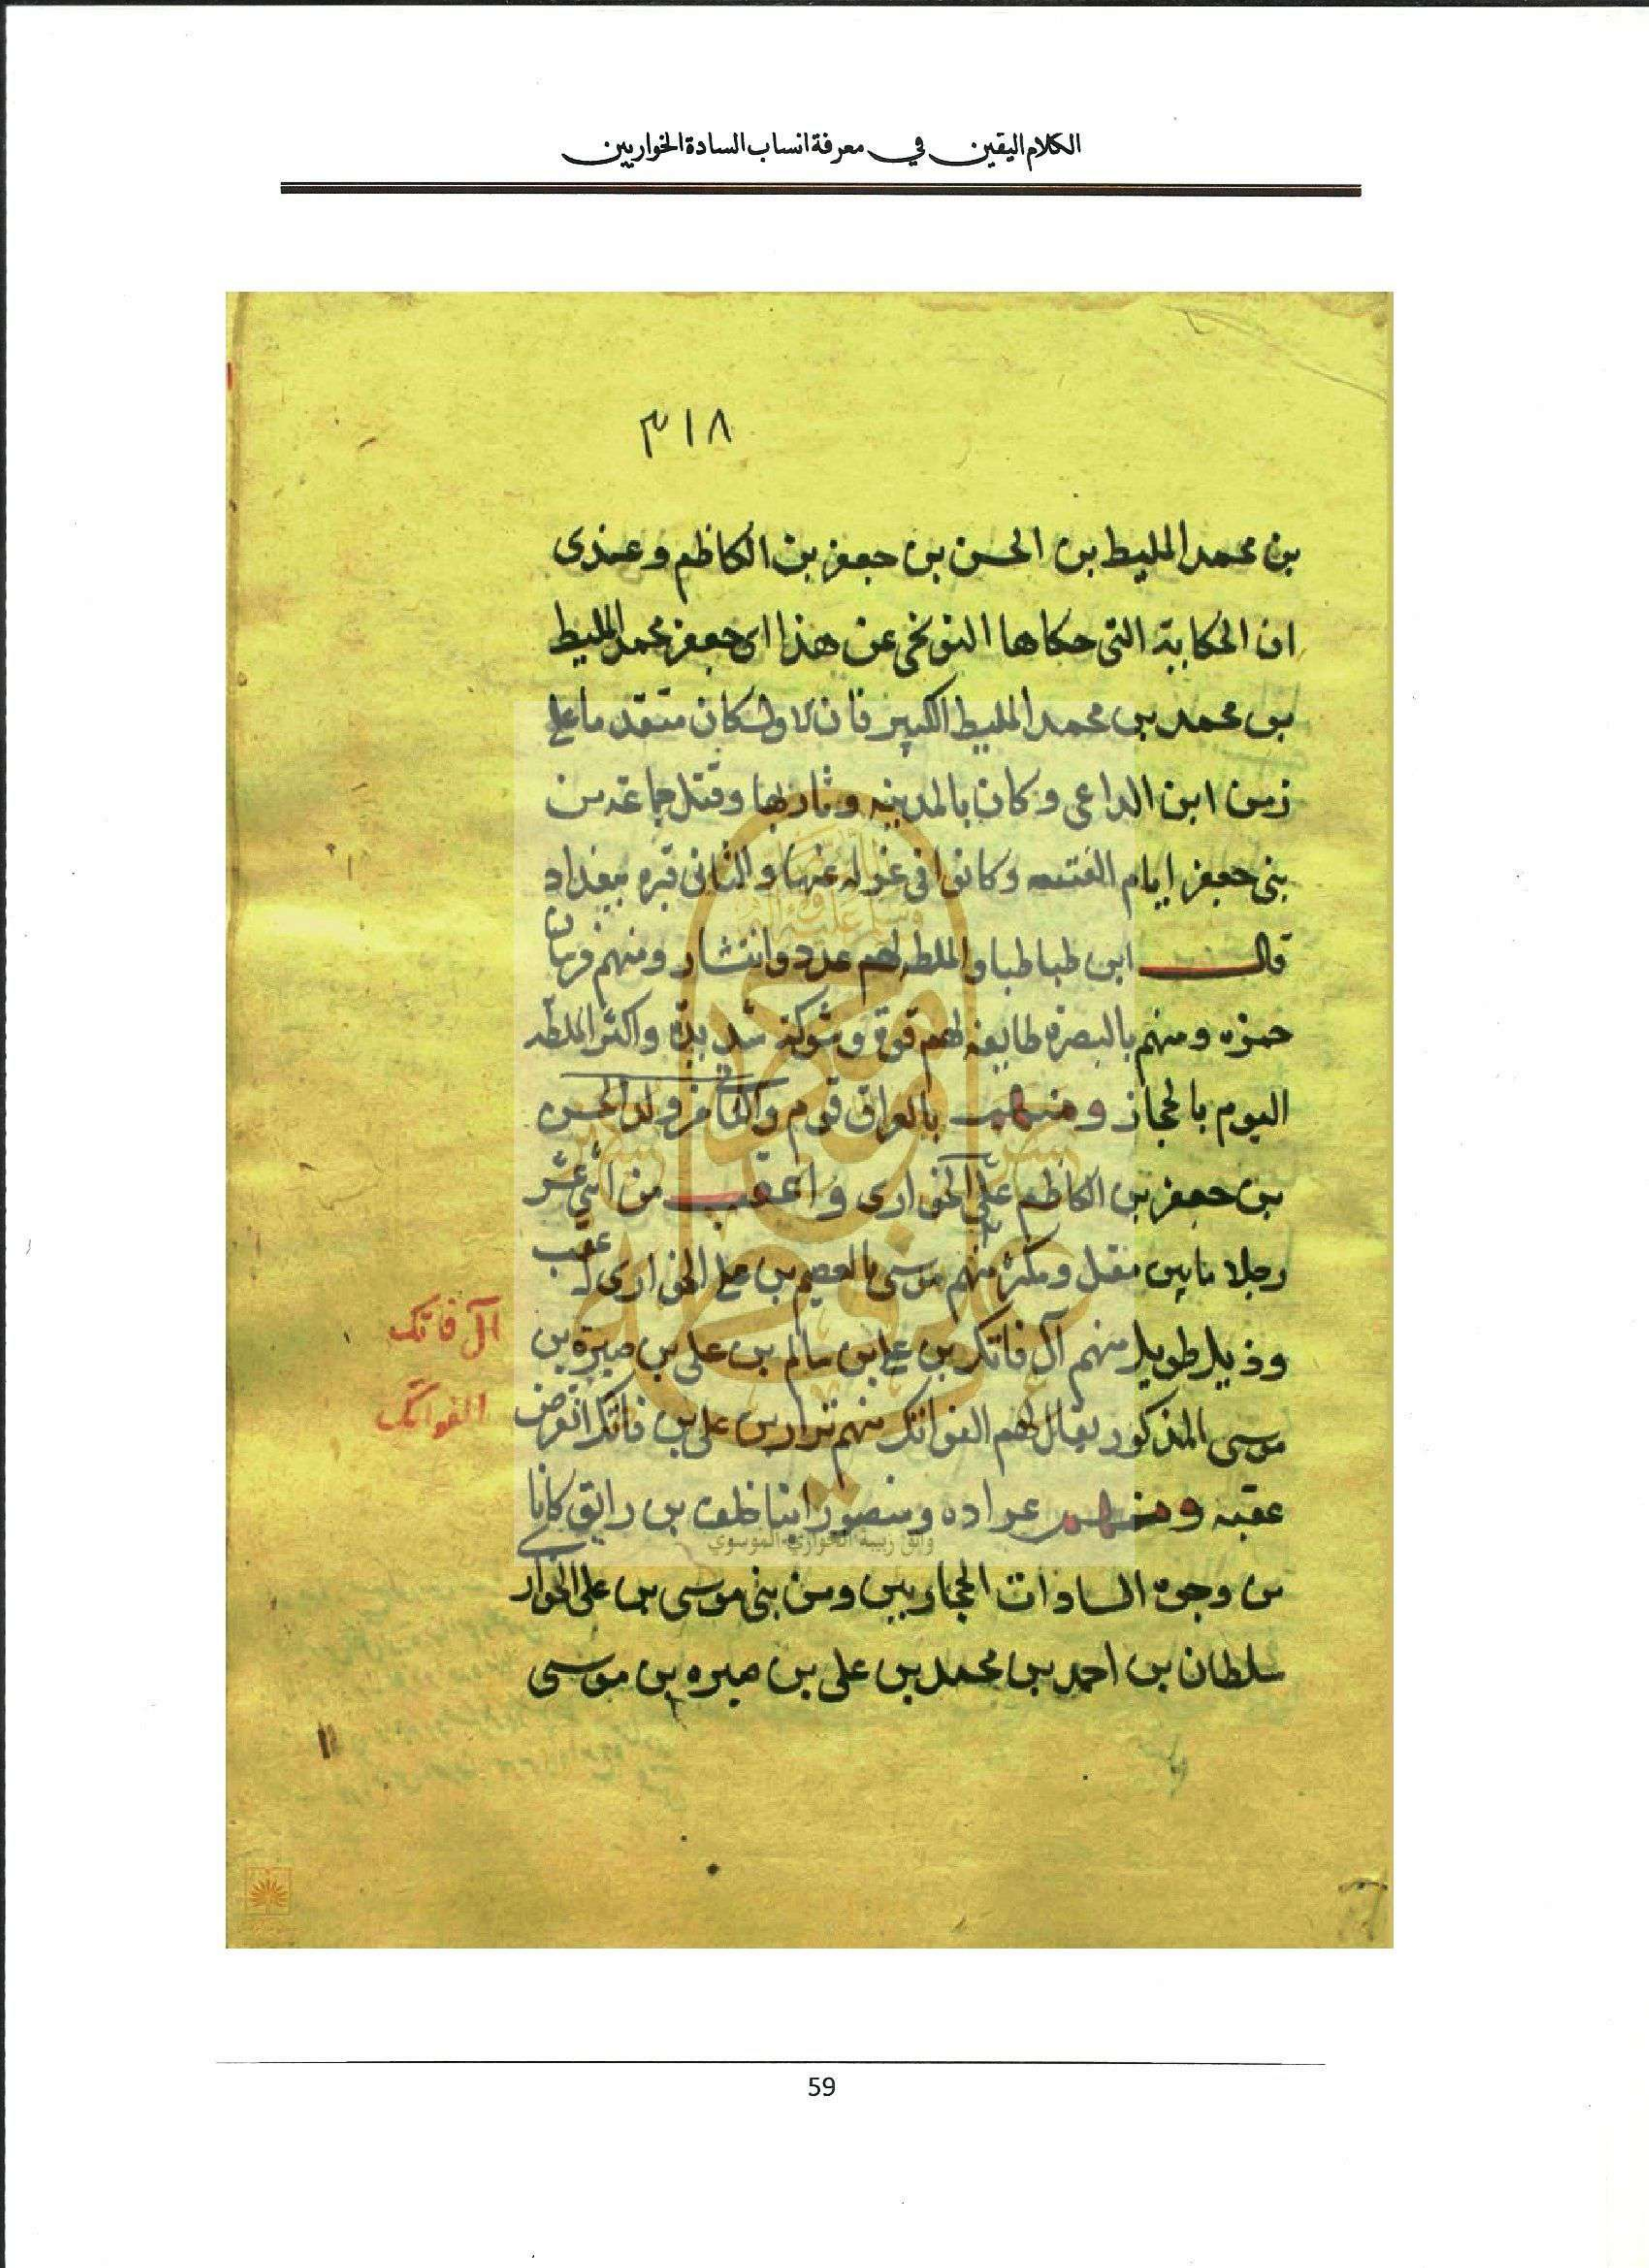 الكلام اليقين في معرفة انساب السادة الخواريين
٣١٨
بن محمد المليط بن الحسن بن جعفر بن الكاظم وعندى
ان الحكاية التى حكاها التنوخى عن هذا اى جعفر محمد المليط
بن محمد بن محمد المليط الكبير فان الاول كان متقدما على
زمن ابن الداعى وكان بالمدينه وثار بها وقتل جماعة من
بنى جعفر ايام الفتنه وكانوا فى عزله عنها والثانى قبره ببغداد
قال ابن طباطبا والملطه لهم عدد وانتشار ومنهم فرسان
حمزه ومنهم بالبصرة طايفه لهم قوة وشوكة شديدة واكثر الملطه
اليوم بالحجاز ومنهم بالعراق قوم والثانى من ولد الحسن
بن جعفر بن الكاظم على الخوارى واعقب من اثنى عشر
رجلا ما بين مقل ومكثر منهم موسى بن على الخوارى له عقب
وذيل طويل منهم آل فاتك بن على بن سالم بن على بن صبرة بن
موسى المذكور يقال لهم الفواتك منهم بن على بن فاتك انقرض
عقبه ومنهم عراده ومنصور ابنا خلف بن رايق كانا
من وجوه السادات الحجازيين ومن بنى موسى بن على الخوار
سلطان بن احمد بن محمد بن على بن صبره بن موسى
آل فاتك
الفواتك
وائق زبيبة الخواري الموسوي
59